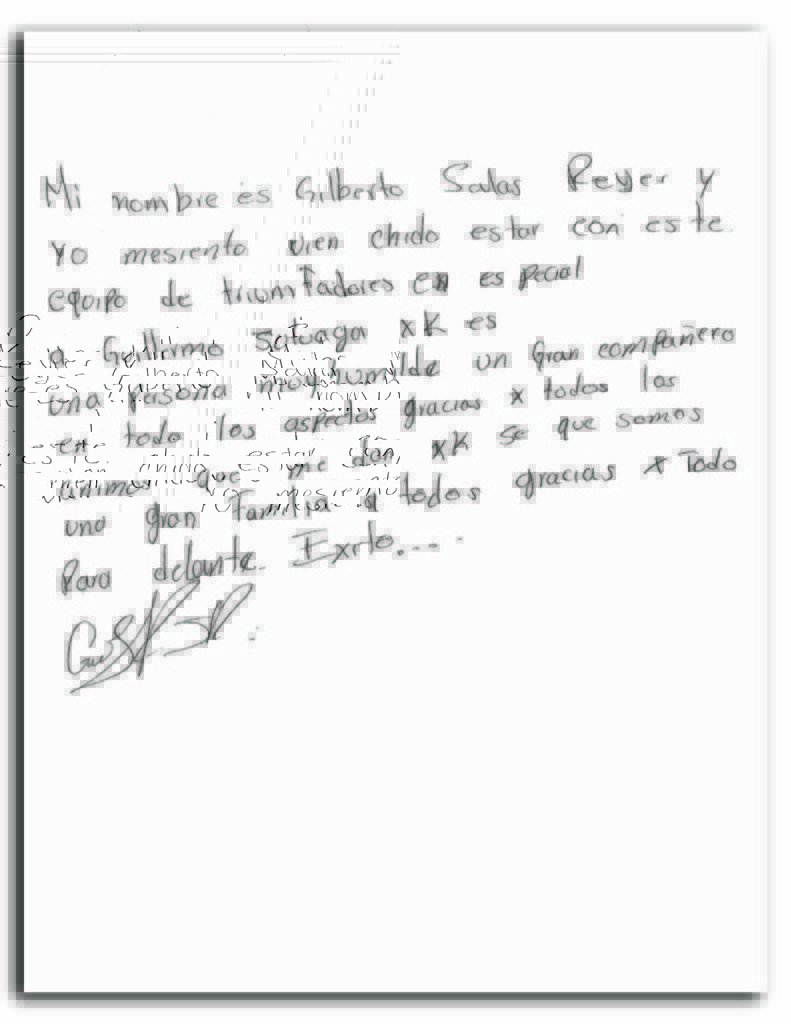 Mi nombre es Gilberto Salas Reyer y
Yo mesiento vien chido estar con este.
equipo de triumfadores en es pecial
a Guillermo xK es
una Persona muy humilde un Gran compañero
en todo los aspectos gracias x todos los
animos que me dan xK se que somos
una gran Familia a todos gracias x Todo
Para delante. Exito....